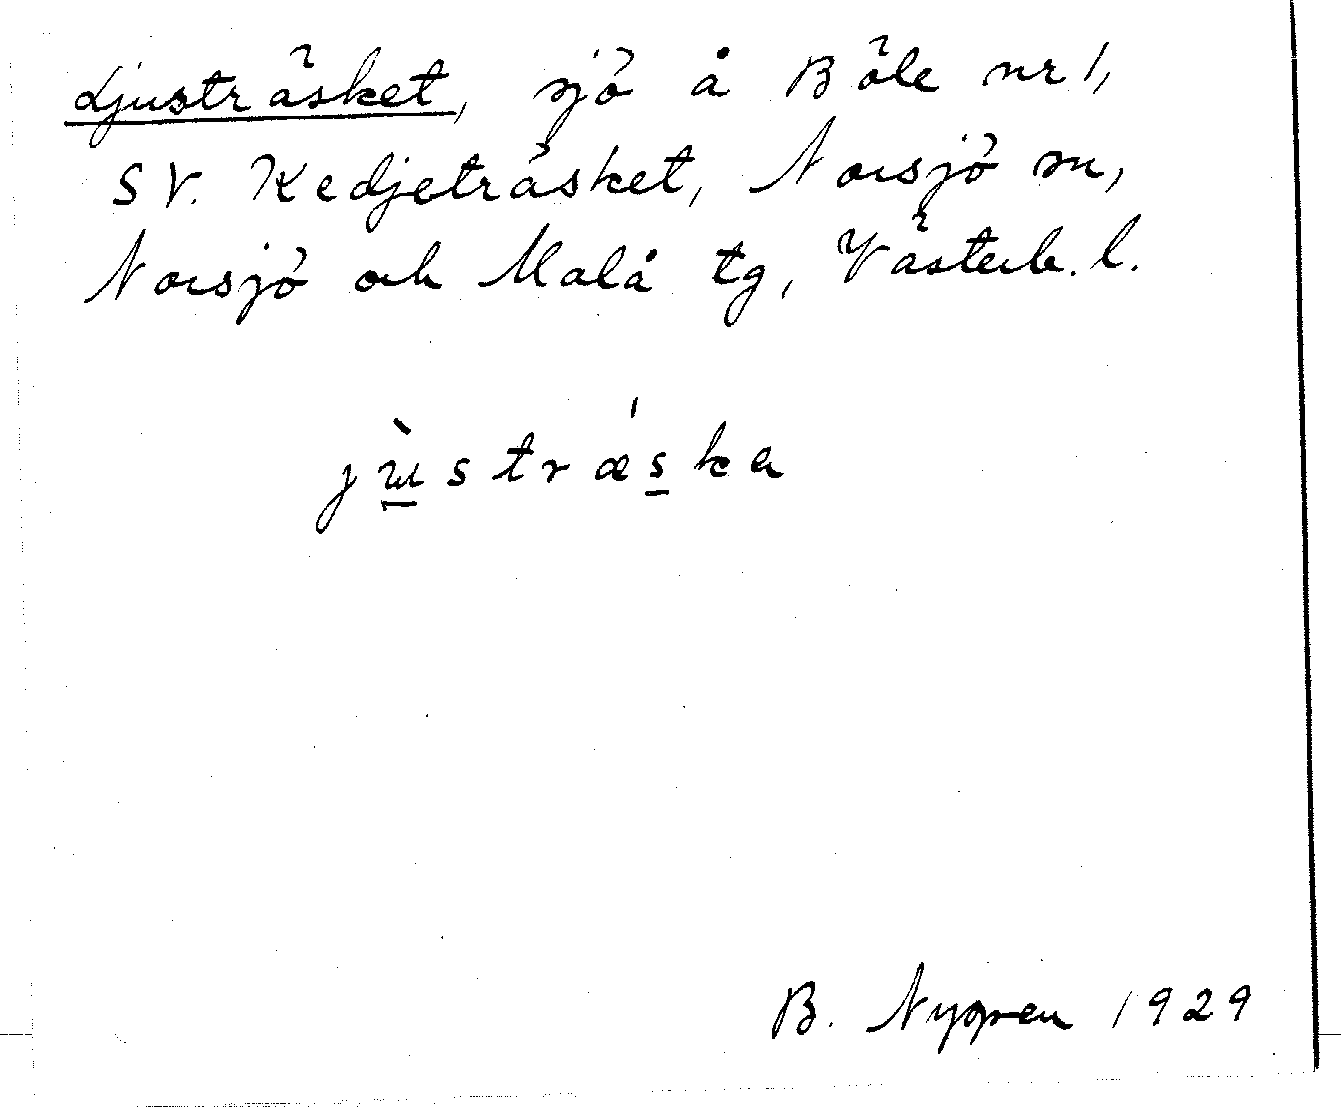 Ljusträsket, sjö å Böle nr 1,
SV. Kedjeträsket, Norsjö sn,
Norsjö och Malå tg, Västerb. l.
jùstrǽska
B. Nygren 1929